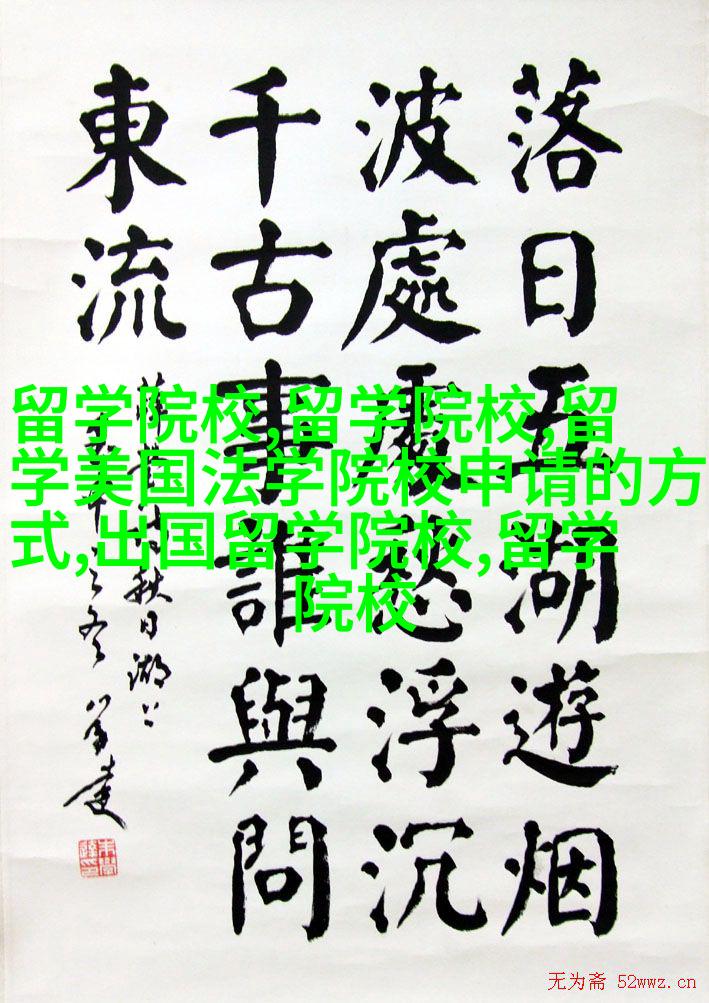 落日五湖遊烟
波處處愁浮沉
千古事誰與問
東流
秋日湖上
留学院校,留学院校,留
学美国法学院校申请的方
式,出国留学院校,留学
院校
无为斋 52wwz.cn